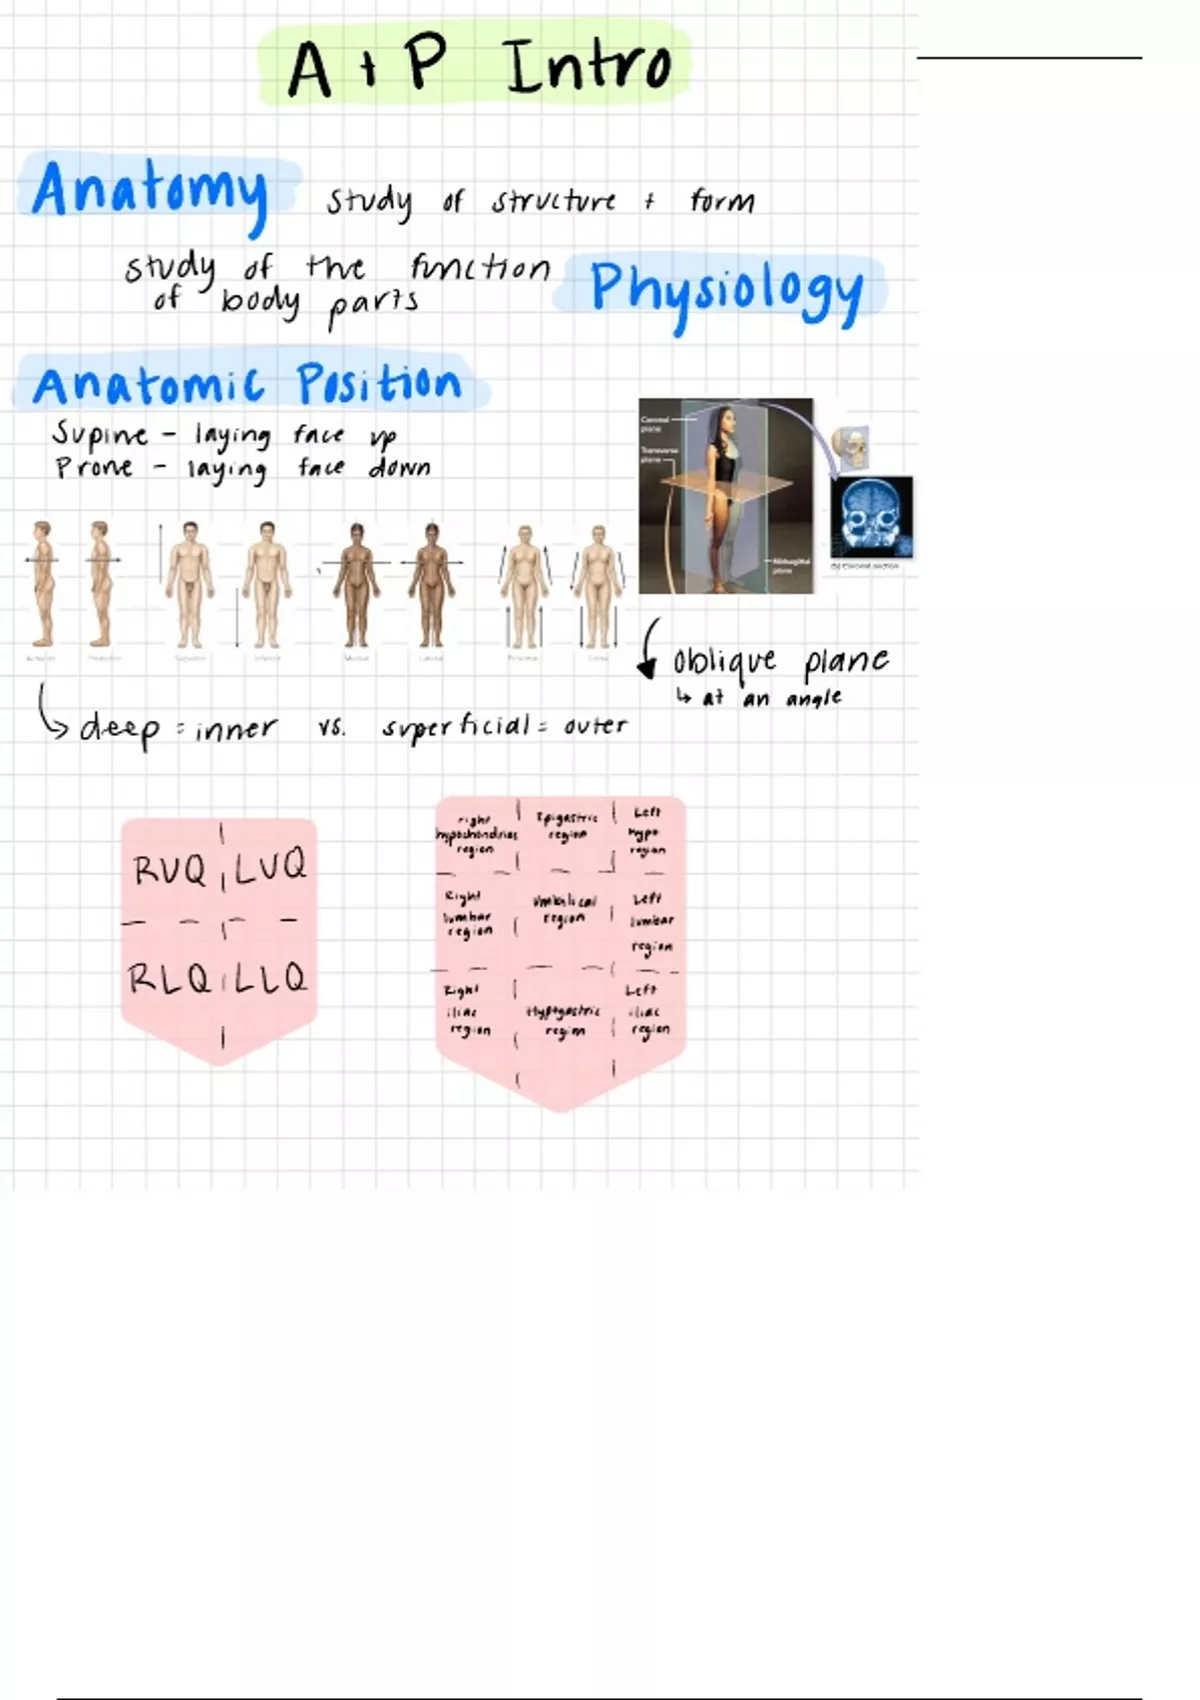 A + P Intro
Anatomy study of structure + form
study of the function
of body parts
Physiology
Anatomic Position
Supine - laying face up
Prone - laying face down
Coronal
plane
Transverse
plane
Midsagittal
plane
(b) Coronal section
Anterior Posterior Superior Inferior Medial Lateral Proximal Distal
oblique plane
↳ at an angle
deep = inner vs. superficial = outer
RUQ LUQ
RLQ LLQ
right
hypochondriac
region
Epigastric
region
Left
hypo
region
Right
lumbar
region
Umbilical
region
Left
lumbar
region
Right
iliac
region
Hypogastric
region
Left
iliac
region